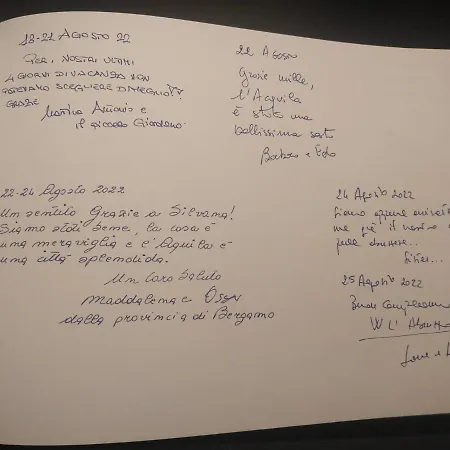 18-21 Agosto 22
Per i nostri ultimi
4 giorni di vacanza non
potevamo scegliere di meglio!!
Grazie
Martina Antonio e
il piccolo Giordano.
22 Agosto
Grazie mille,
l'Aquila
è stata una
bellissima
Barbara e
22-24 Agosto 2022
Un sentito Grazie a Silvana!
Siamo stati bene, la casa è
una meraviglia e l'Aquila è
una città splendida.
Un caro saluto
Maddalena e
dalla provincia di Bergamo
24 Agosto 2022
Siamo appena
ma già il nostro
25 Agosto 2022
Buon
W L'